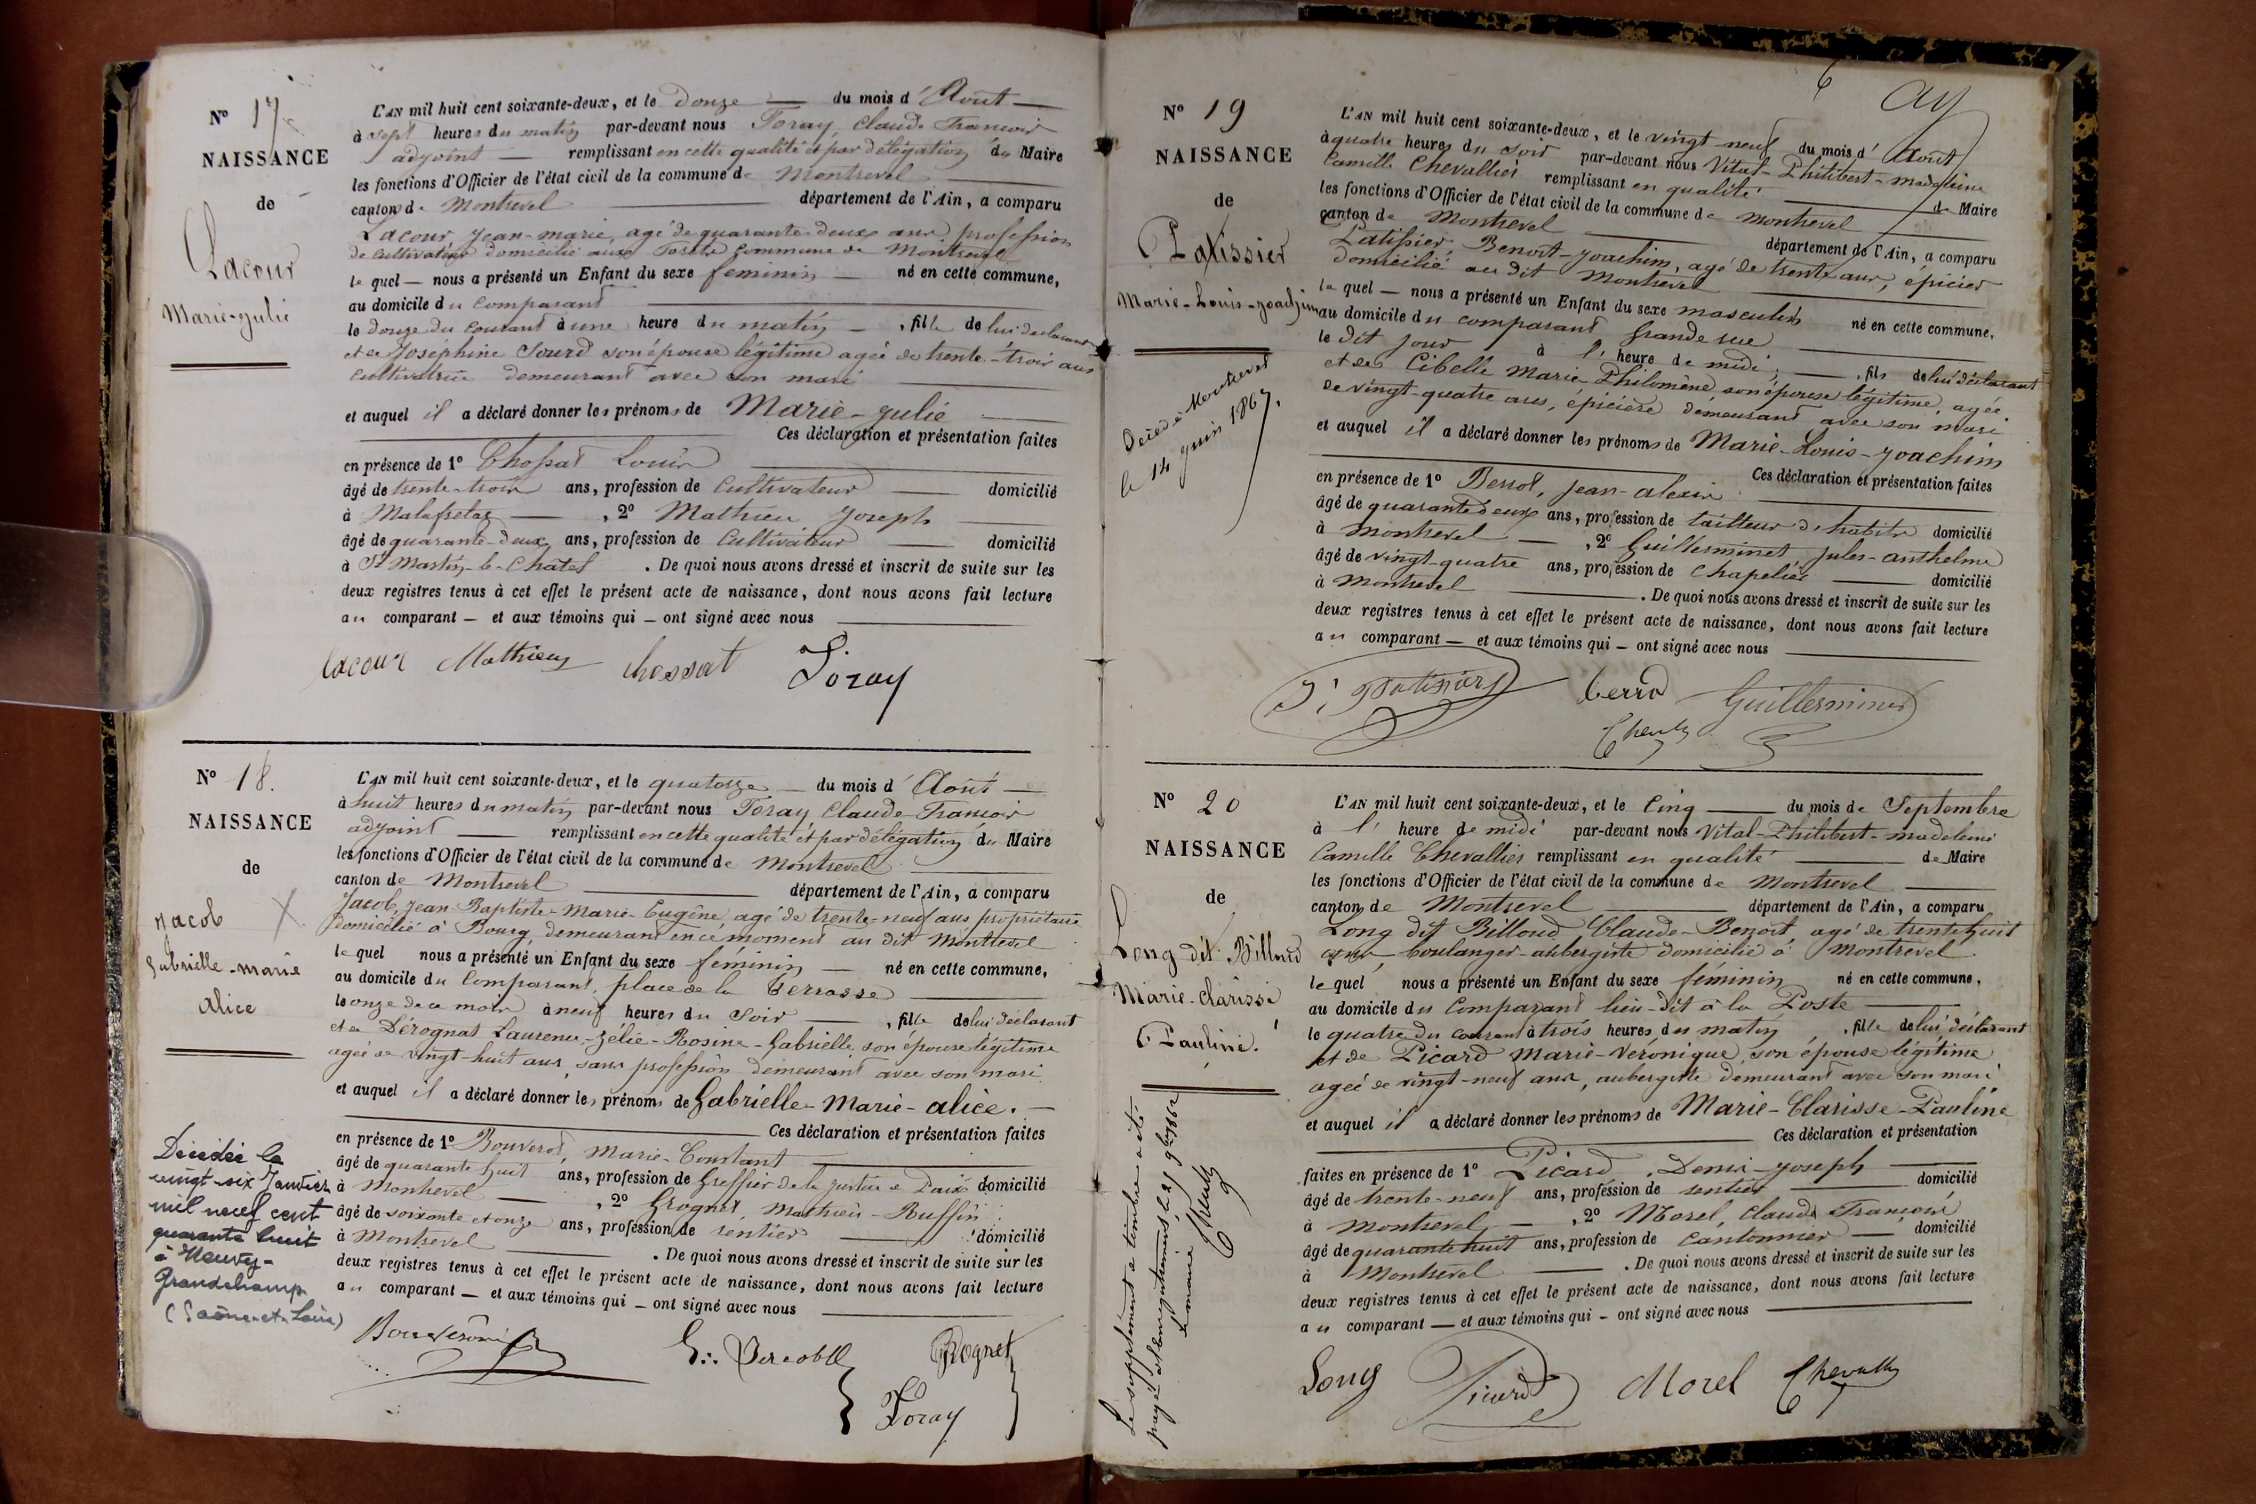 N° 17
NAISSANCE
de
Lacour
Marie-Julie
L'AN mil huit cent soixante-deux, et le douze du mois d'Août
à sept heures du matin par-devant nous Foray, Claude François
adjoint remplissant en cette qualité et par délégation du Maire
les fonctions d'Officier de l'état civil de la commune de Montrevel
canton de Montrevel département de l'Ain, a comparu
Lacour Jean-marie, agé de quarante-deux ans profession
de cultivateur domicilié aux commune de Montrevel
le quel nous a présenté un Enfant du sexe féminin né en cette commune,
au domicile du comparant
le douze du courant à une heure du matin, fille de lui déclarant
et de Joséphine Sourd son épouse légitime agée de trente-trois ans
cultivatrice demeurant avec son mari
et auquel il a déclaré donner les prénoms de Marie-Julie
Ces déclaration et présentation faites
en présence de 1° Chossat Louis
âgé de trente-trois ans, profession de Cultivateur domicilié
à Malafretaz, 2° Mathieu Joseph
âgé de quarante-deux ans, profession de Cultivateur domicilié
à St Martin-le-Chatel. De quoi nous avons dressé et inscrit de suite sur les
deux registres tenus à cet effet le présent acte de naissance, dont nous avons fait lecture
au comparant et aux témoins qui ont signé avec nous
Lacour Mathieu Chossat Foray
N° 18.
NAISSANCE
de
Jacob
Gabrielle-marie
Alice
Décédée le
vingt-six Janvier
mil neuf cent
quarante huit
à Neuvy-
Grandchamp
(Saône-et-Loire)
L'AN mil huit cent soixante-deux, et le quatorze du mois d'Août
à huit heures du matin par-devant nous Foray Claude-François
adjoint remplissant en cette qualité et par délégation du Maire
les fonctions d'Officier de l'état civil de la commune de Montrevel
canton de Montrevel département de l'Ain, a comparu
Jacob, Jean-Baptiste-Marie-Eugène agé de trente-neuf ans propriétaire
domicilié à Bourg, demeurant en ce moment au dit Montrevel
le quel nous a présenté un Enfant du sexe féminin né en cette commune,
au domicile du comparant, place de la Terrasse
le onze de ce mois à neuf heures du soir, fille de lui déclarant
et de Dérognat Laurence-Zélie-Rosine-Gabrielle son épouse légitime
agée de vingt-huit ans, sans profession demeurant avec son mari
et auquel il a déclaré donner les prénoms de Gabrielle-Marie-alice.
Ces déclaration et présentation faites
en présence de 1° Bouverot, Marie-Constant
âgé de quarante huit ans, profession de Greffier de la Justice de Paix domicilié
à Montrevel, 2° Grognet, Mathieu-Ruffin
âgé de soixante et onze ans, profession de rentier domicilié
à Montrevel. De quoi nous avons dressé et inscrit de suite sur les
deux registres tenus à cet effet le présent acte de naissance, dont nous avons fait lecture
au comparant et aux témoins qui ont signé avec nous
Grognet
Foray
6
N° 19
NAISSANCE
de
Patissier
Marie-Louis-Joachim
Décédé à Montrevel
le 14 juin 1867.
L'AN mil huit cent soixante-deux, et le vingt-neuf du mois d'Août
à quatre heures du soir par-devant nous Vital-Philibert-madeleine
Camille Chevallier remplissant en qualité de Maire
les fonctions d'Officier de l'état civil de la commune de Montrevel
canton de Montrevel département de l'Ain, a comparu
Patissier, Benoît-Joachim, agé de trente ans, épicier
domicilié au dit Montrevel
le quel nous a présenté un Enfant du sexe masculin né en cette commune,
au domicile du comparant Grande rue
le dit jour à l'heure de midi, fils de lui déclarant
et de Cibelle Marie Philomène, son épouse légitime, agée
de vingt-quatre ans, épicière demeurant avec son mari
et auquel il a déclaré donner les prénoms de Marie-Louis-Joachim
Ces déclaration et présentation faites
en présence de 1° Berrod, Jean-alexis
âgé de quarante deux ans, profession de tailleur d'habits domicilié
à Montrevel, 2° Guillerminet Jules-anthelme
âgé de vingt-quatre ans, profession de Chapelier domicilié
à Montrevel. De quoi nous avons dressé et inscrit de suite sur les
deux registres tenus à cet effet le présent acte de naissance, dont nous avons fait lecture
au comparant et aux témoins qui ont signé avec nous
J. Patissier Berrod Guillerminet
N° 20
NAISSANCE
de
Long dit Billoud
Marie-Clarisse
Pauline.
Le supplément de timbre a été
payé le 29 9bre 1862
Le maire
L'AN mil huit cent soixante-deux, et le Cinq du mois de Septembre
à l'heure de midi par-devant nous Vital-Philibert-madeleine
Camille Chevallier remplissant en qualité de Maire
les fonctions d'Officier de l'état civil de la commune de Montrevel
canton de Montrevel département de l'Ain, a comparu
Long dit Billoud Claude-Benoît agé de trente huit
ans, boulanger-aubergiste domicilié à Montrevel
le quel nous a présenté un Enfant du sexe féminin né en cette commune,
au domicile du comparant lieu-dit à la Poste
le quatre du courant à trois heures du matin, fille de lui déclarant
et de Picard Marie-Véronique, son épouse légitime
agée de vingt-neuf ans, aubergiste demeurant avec son mari
et auquel il a déclaré donner les prénoms de Marie-Clarisse-Pauline
Ces déclaration et présentation
faites en présence de 1° Picard, Denis-Joseph
âgé de trente-neuf ans, profession de rentier domicilié
à Montrevel, 2° Morel, Claude François
âgé de quarante huit ans, profession de Cantonnier domicilié
à Montrevel. De quoi nous avons dressé et inscrit de suite sur les
deux registres tenus à cet effet le présent acte de naissance, dont nous avons fait lecture
au comparant et aux témoins qui ont signé avec nous
Long Picard Morel Chevallier